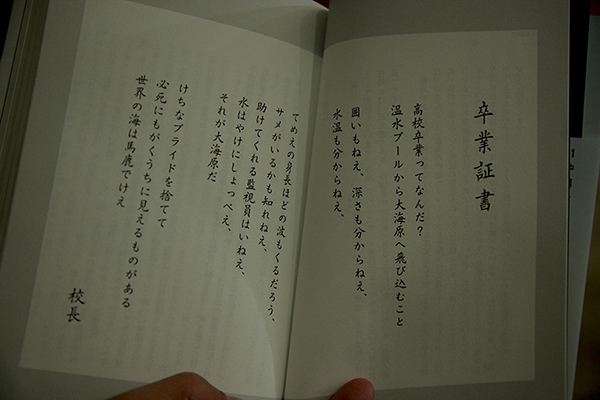 卒業証書
高校卒業ってなんだ？
温水プールから大海原へ飛び込むこと
囲いもねえ、深さも分からねえ、
水温も分からねえ、
てめえの身長ほどの波もくるだろう、
サメがいるかも知れねえ、
助けてくれる監視員はいねえ、
水はやけにしょっぺえ、
それが大海原だ
けちなプライドを捨てて
必死にもがくうちに見えるものがある
世界の海は馬鹿でけえ
校長